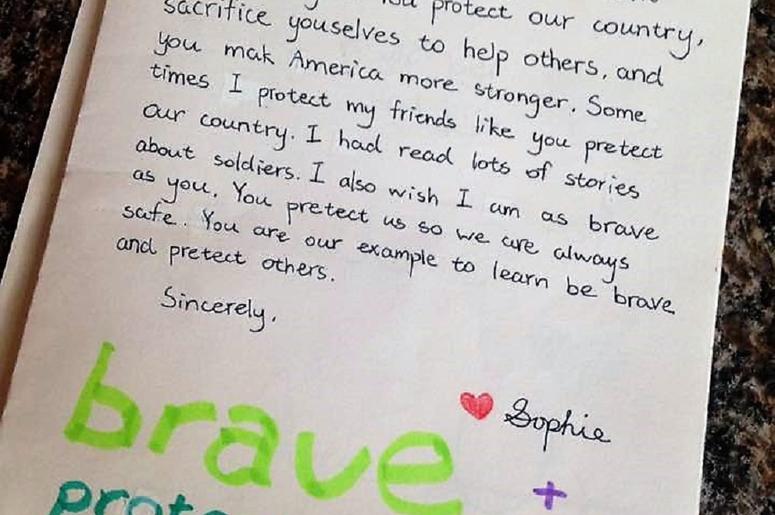 protect our country,
sacrifice youselves to help others, and
you mak America more stronger. Some
times I protect my friends like you pretect
our country. I had read lots of stories
about soldiers. I also wish I am as brave
as you. You pretect us so we are always
safe. You are our example to learn be brave
and pretect others.
Sincerely,
♥ Sophie
brave
+